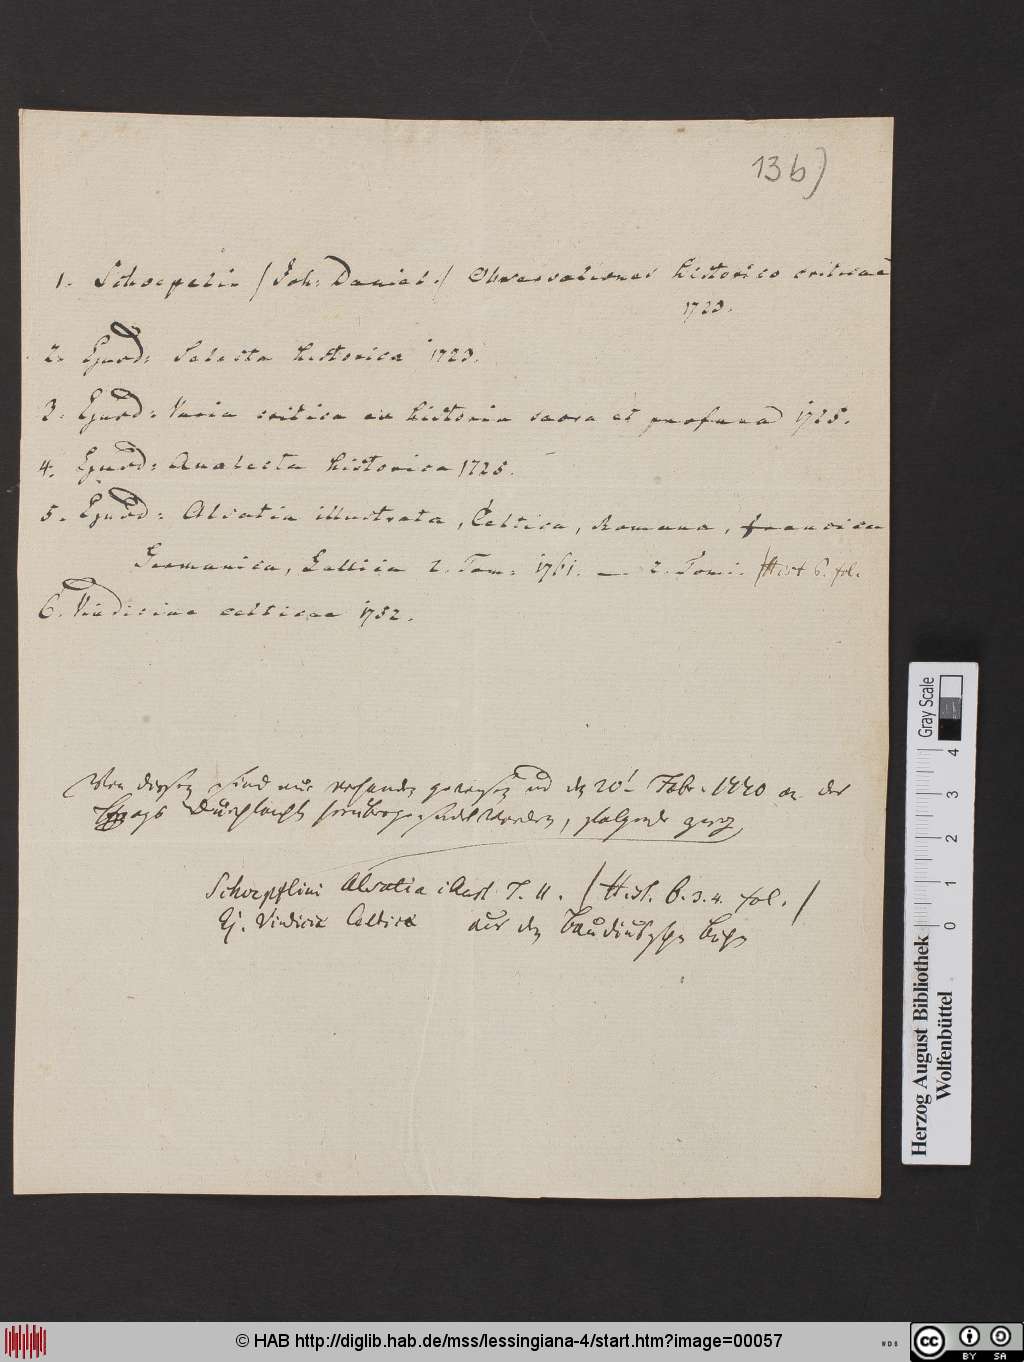 13b)
1. Schoepelin (Joh: Daniel.) Observationes historico criticae
1723.
2. Ejusd: Selecta historica 1723.
3. Ejusd: Varia critica ex historia sacra et profana 1725.
4. Ejusd: Analecta historica 1725.
5. Ejusd: Alsatia illustrata, Celtica, Romana, francica
Germanica, Gallica 2. Tom: 1761. — 2. Tomi. (Hist 6. fol.
6. Vindiciae celticae 1752.
Von diesen sind nur vorhanden gewesen und den 20t Febr. 1770 an des
Durchlaucht worden, folgende
Schoepflini Alsatia illust T. II. (Hist. 6. 3. 4. fol.)
Ej. Vindiciæ Celticæ aus den
Herzog August Bibliothek
Wolfenbüttel
Gray Scale
0 1 2 3 4
© HAB http://diglib.hab.de/mss/lessingiana-4/start.htm?image=00057
cc BY SA